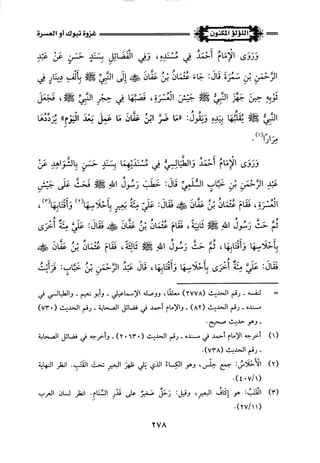 اللؤلؤ المكنون
غزوة تبوك أو العسرة
وَرَوَى الإِمَامُ أَحْمَدُ فِي مُسْنَدِهِ، وَفِي الْفَضَائِلِ بِسَنَدٍ حَسَنٍ عَنْ عَبْدِ
الرَّحْمَنِ بْنِ سَمُرَةَ قَالَ: جَاءَ عُثْمَانُ بْنُ عَفَّانَ ﷺ إِلَى النَّبِيِّ ﷺ بِأَلْفِ دِينَارٍ فِي
ثَوْبِهِ حِينَ جَهَّزَ النَّبِيُّ ﷺ جَيْشَ الْعُسْرَةِ، فَصَبَّهَا فِي حِجْرِ النَّبِيِّ ﷺ، فَجَعَلَ
النَّبِيُّ ﷺ يُقَلِّبُهَا بِيَدِهِ وَيَقُولُ: «مَا ضَرَّ ابْنُ عَفَّانَ مَا عَمِلَ بَعْدَ الْيَوْمِ» يُرَدِّدُهَا
مِرَارًا(١).
وَرَوَى الإِمَامُ أَحْمَدُ وَالطَّيَالِسِيُّ فِي مُسْنَدَيْهِمَا بِسَنَدٍ حَسَنٍ بِالشَّوَاهِدِ عَنْ
عَبْدِ الرَّحْمَنِ بْنِ خَبَّابٍ السُّلَمِيِّ قَالَ: خَطَبَ رَسُولُ اللهِ ﷺ فَحَثَّ عَلَى جَيْشِ
الْعُسْرَةِ، فَقَامَ عُثْمَانُ بْنُ عَفَّانَ ﷺ فَقَالَ: عَلَيَّ مِئَةُ بَعِيرٍ بِأَحْلَاسِهَا(٢) وَأَقْتَابِهَا(٣)،
ثُمَّ حَثَّ رَسُولُ اللهِ ﷺ ثَانِيَةً، فَقَامَ عُثْمَانُ بْنُ عَفَّانَ ﷺ فَقَالَ: عَلَيَّ مِئَةٌ أُخْرَى
بِأَحْلَاسِهَا وَأَقْتَابِهَا، ثُمَّ حَثَّ رَسُولُ اللهِ ﷺ ثَالِثَةً، فَقَامَ عُثْمَانُ بْنُ عَفَّانَ ﷺ
فَقَالَ: عَلَيَّ مِئَةٌ أُخْرَى بِأَحْلَاسِهَا وَأَقْتَابِهَا، قَالَ عَبْدُ الرَّحْمَنِ بْنُ خَبَّابٍ: فَرَأَيْتُ
= لنفسه - رقم الحديث (٢٧٧٨) معلقًا، ووصله الإسماعيلي، وأبو نعيم - والطيالسي في
مسنده - رقم الحديث (٨٢) - والإمام أحمد في فضائل الصحابة - رقم الحديث (٧٣٠)
- وهو حديث صحيح.
(١) أخرجه الإمام أحمد في مسنده - رقم الحديث (٢٠٦٣٠) - وأخرجه في فضائل الصحابة
- رقم الحديث (٧٣٨).
(٢) الأَحْلَاسُ: جمع حِلْس، وهو الكِسَاءُ الذي يَلِي ظهْرَ البعيرِ تحتَ القَتَبِ. انظر النهاية
(٤٠٧/١)
(٣) القَتَبُ: هو إِكَافُ البعيرِ، وقيلَ: رَحْلٌ صَغِيرٌ على قَدْرِ السَّنَامِ. انظر لسان العرب
(٢٧/١١).
٢٧٨